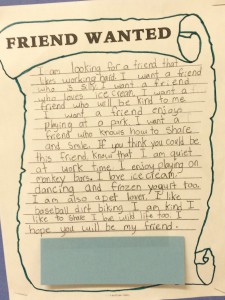 FRIEND WANTED
I am looking for a friend that
likes working hard. I want a friend
who is silly. I want a friend
who loves ice cream. I want a
friend who will be kind to me.
I want a friend enjoys
playing at a park. I want a
friend who knows how to share
and smile. If you think you could be
this friend know that I am quiet
at work time. I enjoy playing on
monkey bars. I love ice cream.
dancing and frozen yogurt too.
I am also a pet lover. I like
baseball dirt biking. I am kind I
like to share. I love wild life too. I
hope you will be my friend.